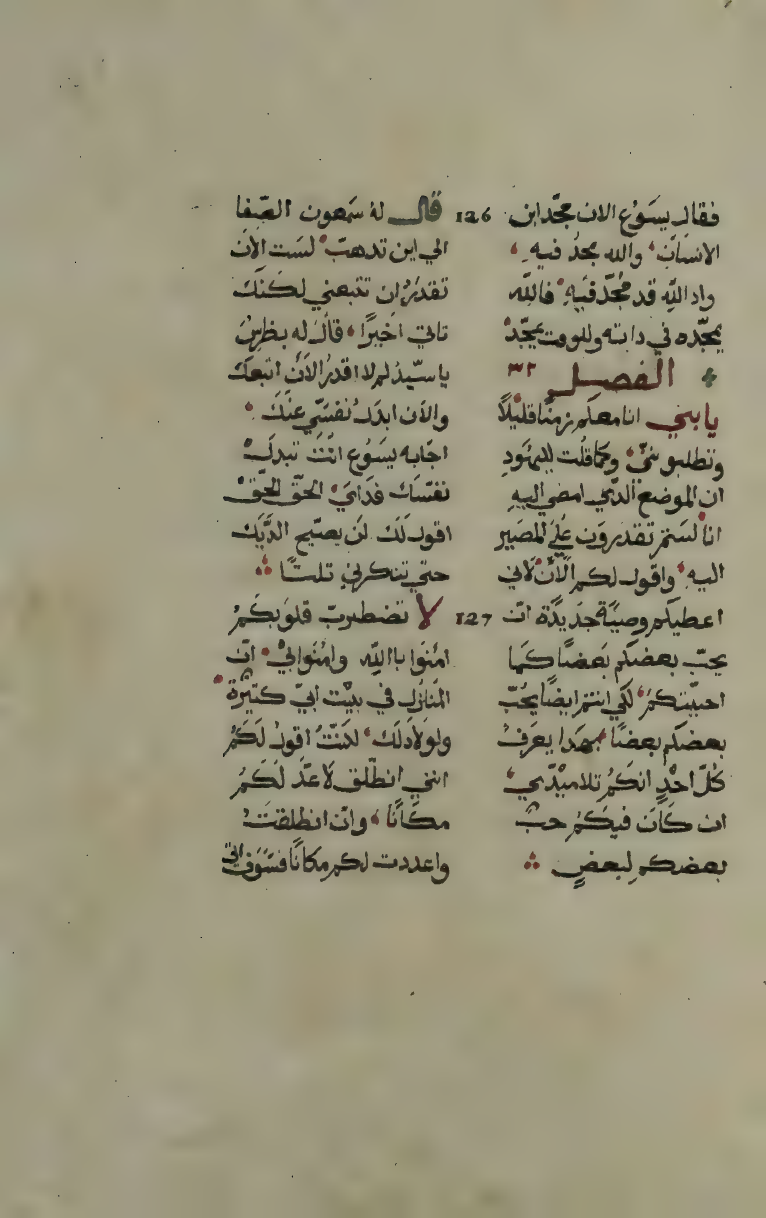 فقال يسَوُع الان مجّد ابن
الانسَان، والله مجدُ فيهِ،
واد اللّه قد مُجّد فيَهِ فاللّه
يمجّده في داته وللوقت يمجّدهُ
الفصل ٣٢
يا بني انا معكم زمنًا قليْلاً
وتطلبو نيْ، وكما قلُت لليهُودِ
ان الموضع الدّي امضي اليهِ
انا لستم تقدرون علي المصَير
اليهِ، واقول لكم الاَن لاني
اعطيكم وصيَّة جدَيدًة ان
يحبّ بعضكم بَعضًا كمَا
احببْتكمُ، لكي انتم ايضًا يحُبّ
بعضكم بعضًا، بهدَا يعَرفُ
كُلّ احْدٍ انكمُ تلاميدْي،
ان كَان فيكمُ حبّ
بعضكم لبعضٍ
126 قال لهُ سَمعون الصّفا
الي اين تدهبْ لسَت الان
تقدرُ ان تتبعني لكنَك
تاتي اخيرًا، قال له بطرسُ
يا سّيدُ لم لا اقدرُ الان اتبعك
والان ابدَلُ نفسَي عنْك
اجَابه يسَوُع انْت تبدلْ
نفسَك فدَايْ الحَقّ الحّق
اقول لك لن يصَيح الدّيك
حتي تنكرني تلتًا
127 لا تضطربْ قلوَبكمُ
امنُوا باللّهِ وامنُوا بيْ انّ
المنَازل في بيْت ابيّ كتيْرةٌ
ولو لادَلك، لكنْتُ اقولُ لكَمُ
انني انطَلق لاعَدّ لَكمُ
مكَانًا، وان انطلقتُ
واعددت لكم مكانًا فسَوَف اتي